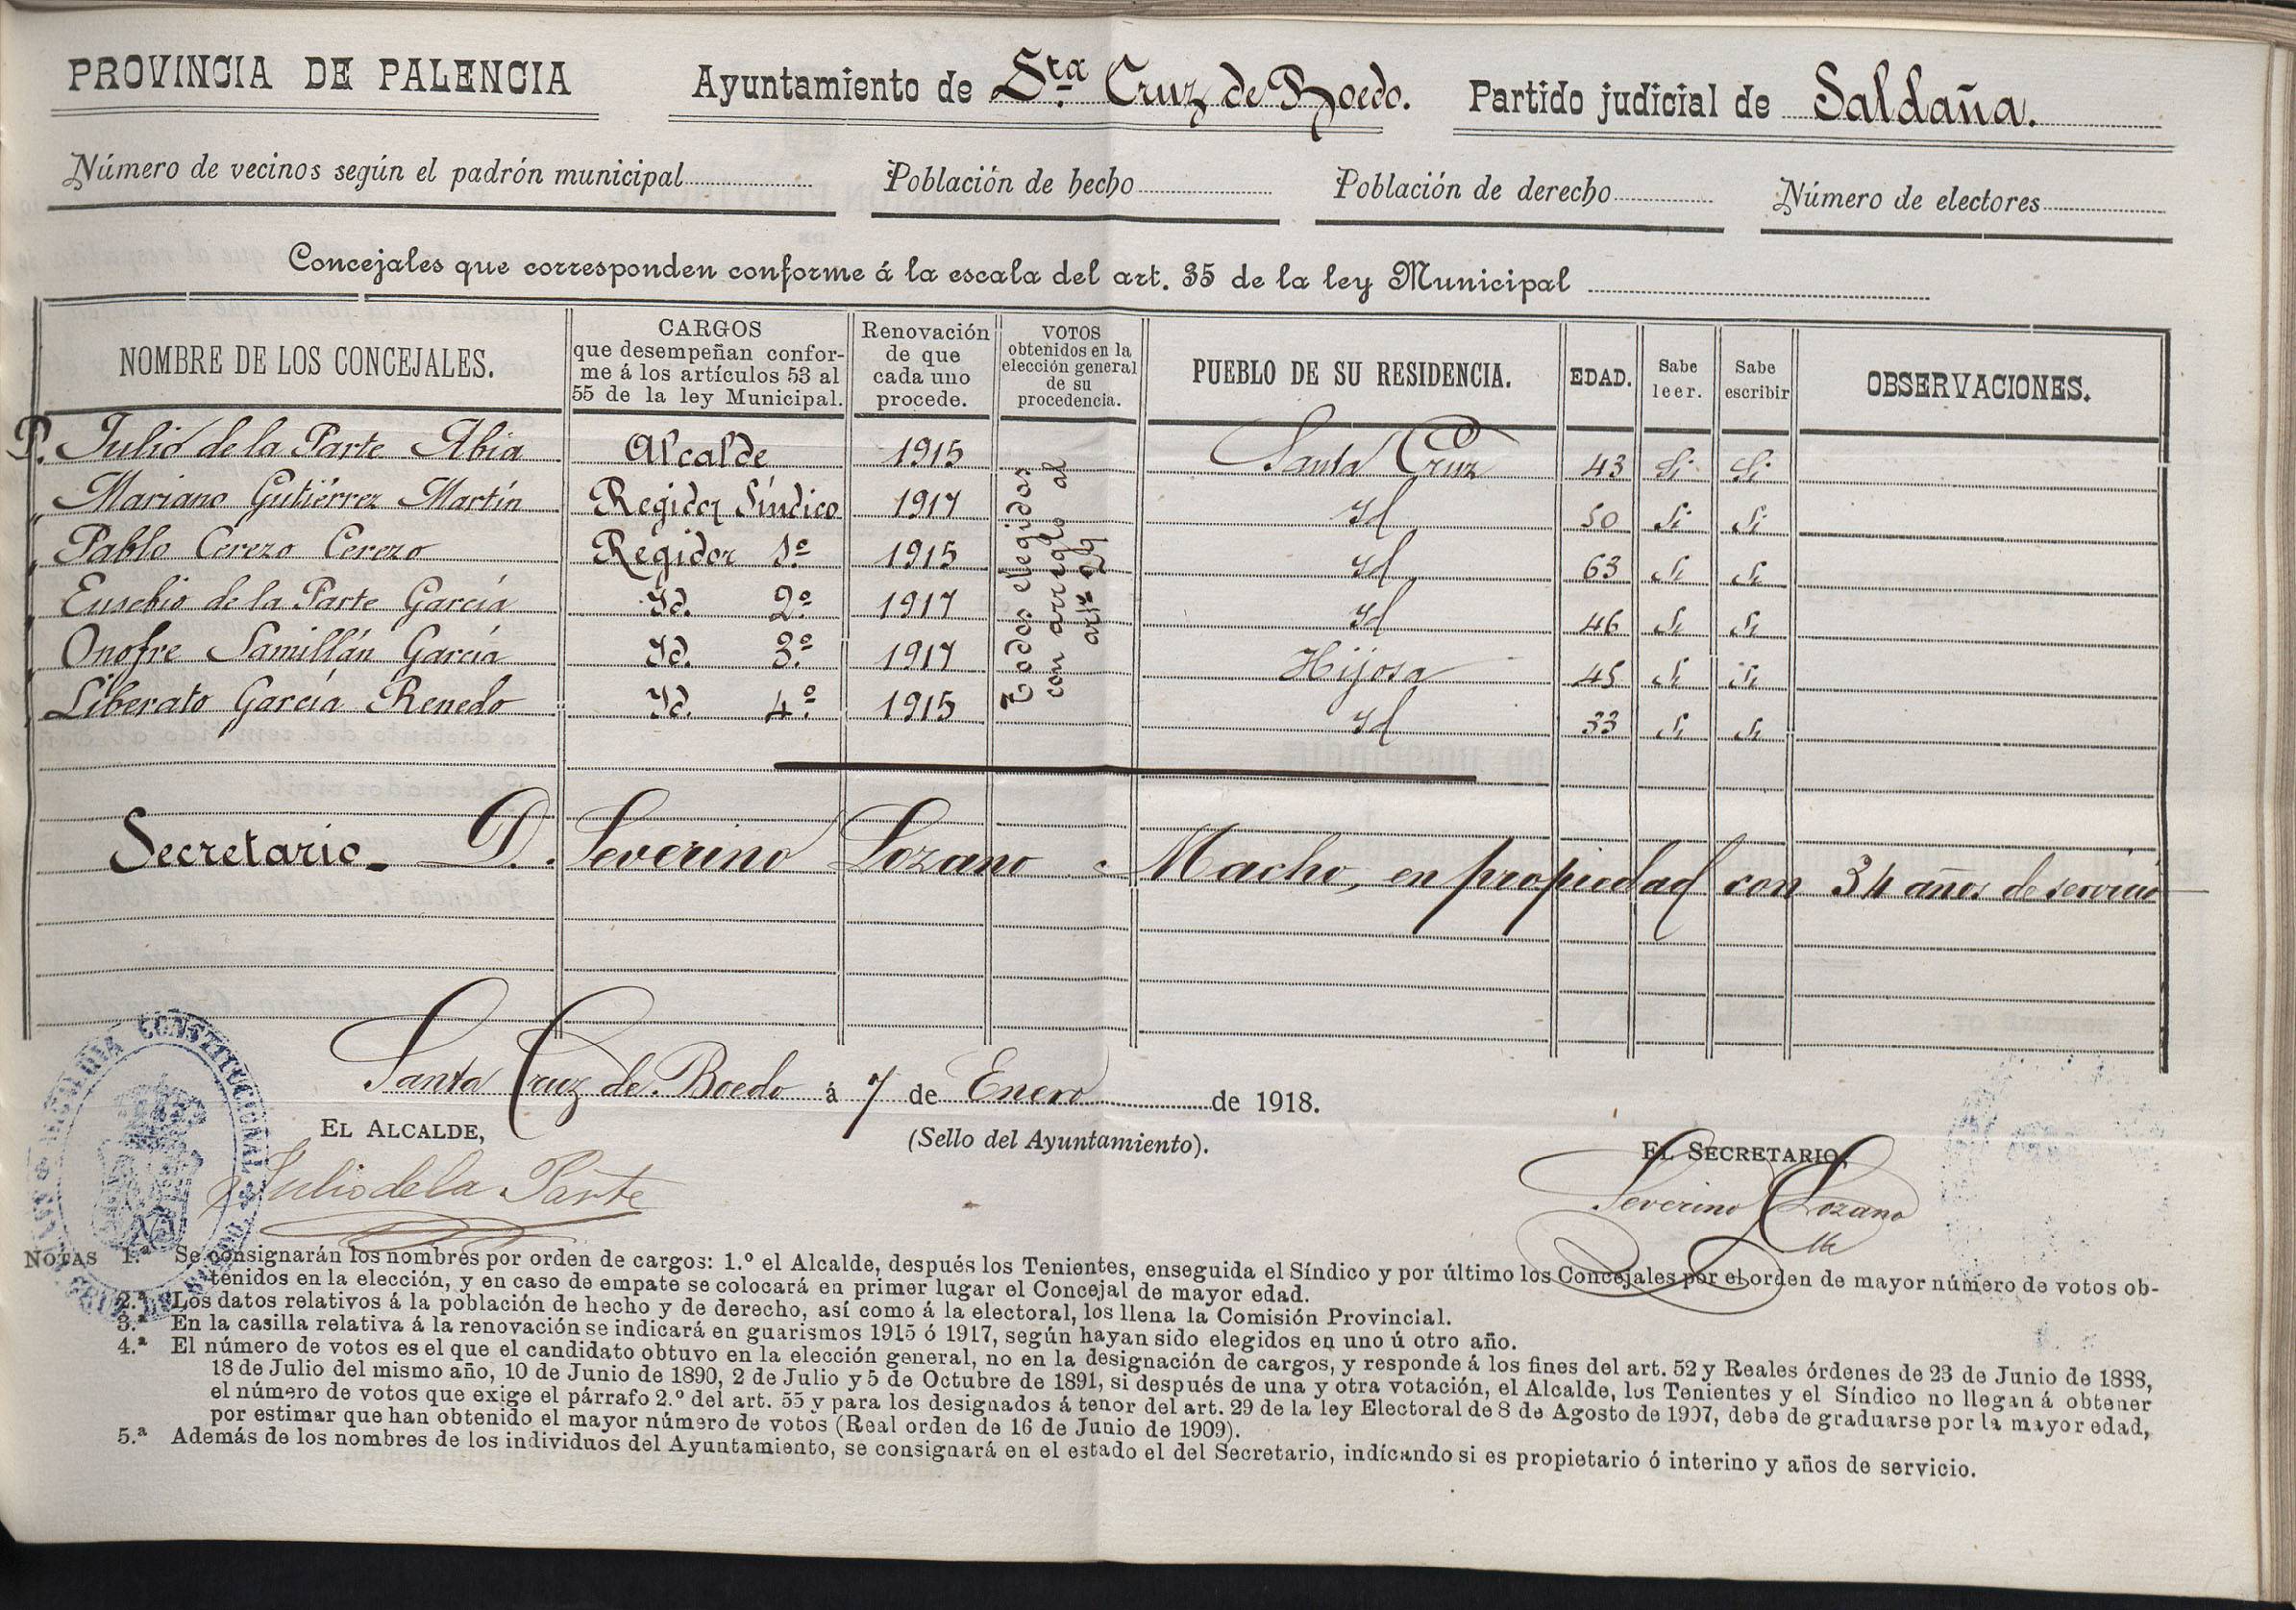 PROVINCIA DE PALENCIA Ayuntamiento de Sta. Cruz de Boedo. Partido judicial de Saldaña.
Número de vecinos según el padrón municipal Población de hecho Población de derecho Número de electores
Concejales que corresponden conforme á la escala del art. 35 de la ley Municipal
NOMBRE DE LOS CONCEJALES. CARGOS que desempeñan conforme á los artículos 53 al 55 de la ley Municipal. Renovación de que cada uno procede. VOTOS obtenidos en la elección general de su procedencia. PUEBLO DE SU RESIDENCIA. EDAD. Sabe leer. Sabe escribir OBSERVACIONES.
D. Julio de la Parte Abia Alcalde 1915 Santa Cruz 43 Si Si
„ Mariano Gutiérrez Martín Regidor Síndico 1917 Id 50 Si Si
„ Pablo Cerezo Cerezo Regidor 1.º 1915 Id 63 Si Si
„ Eusebio de la Parte García Id. 2.º 1917 Id 46 Si Si
„ Onofre Samillán García Id. 3.º 1917 Hijosa 45 Si Si
„ Liberato García Renedo Id. 4.º 1915 Id 33 Si Si
Todos elegidos
con arreglo al
artº 29
Secretario - D. Severino Lozano Macho, en propiedad con 34 años de servicio
Santa Cruz de Boedo á 7 de Enero de 1918.
EL ALCALDE,
(Sello del Ayuntamiento).
EL SECRETARIO,
Julio de la Parte
Severino Lozano
ALCALDIA CONSTITUCIONAL
NOTAS 1.ª Se consignarán los nombres por orden de cargos: 1.º el Alcalde, después los Tenientes, enseguida el Síndico y por último los Concejales por el orden de mayor número de votos ob-
tenidos en la elección, y en caso de empate se colocará en primer lugar el Concejal de mayor edad.
2.ª Los datos relativos á la población de hecho y de derecho, así como á la electoral, los llena la Comisión Provincial.
3.ª En la casilla relativa á la renovación se indicará en guarismos 1915 ó 1917, según hayan sido elegidos en uno ú otro año.
4.ª El número de votos es el que el candidato obtuvo en la elección general, no en la designación de cargos, y responde á los fines del art. 52 y Reales órdenes de 23 de Junio de 1888,
18 de Julio del mismo año, 10 de Junio de 1890, 2 de Julio y 5 de Octubre de 1891, si después de una y otra votación, el Alcalde, los Tenientes y el Síndico no llegan á obtener
el número de votos que exige el párrafo 2.º del art. 55 y para los designados á tenor del art. 29 de la ley Electoral de 8 de Agosto de 1907, debe de graduarse por la mayor edad,
por estimar que han obtenido el mayor número de votos (Real orden de 16 de Junio de 1909).
5.ª Además de los nombres de los individuos del Ayuntamiento, se consignará en el estado el del Secretario, indicando si es propietario ó interino y años de servicio.